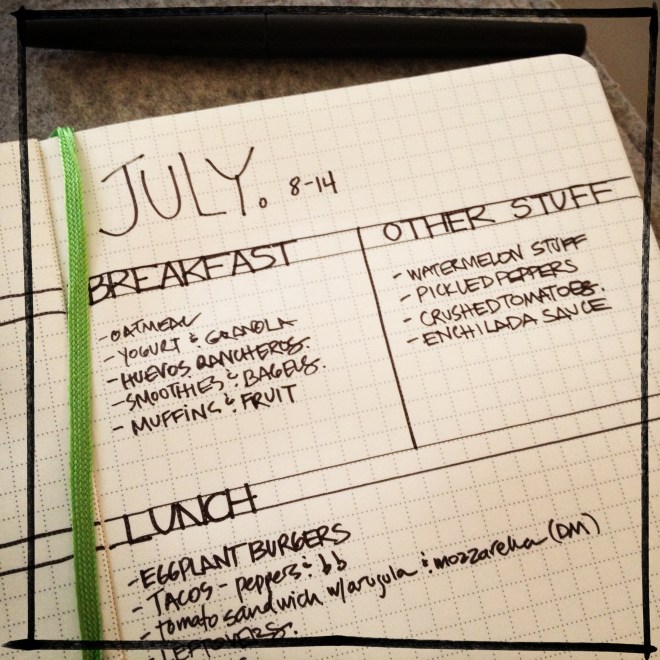 JULY. 8-14
BREAKFAST
- OATMEAL
- YOGURT & GRANOLA
- HUEVOS RANCHEROS.
- SMOOTHIES & BAGELS.
- MUFFINS & FRUIT
OTHER STUFF
- WATERMELON STUFF
- PICKLED PEPPERS
- CRUSHED TOMATOES.
- ENCHILADA SAUCE
LUNCH
- EGGPLANT BURGERS
- TACOS - peppers & bb
- tomato sandwich w/arugula & mozzarella (DM)
- LEFTOVERS.